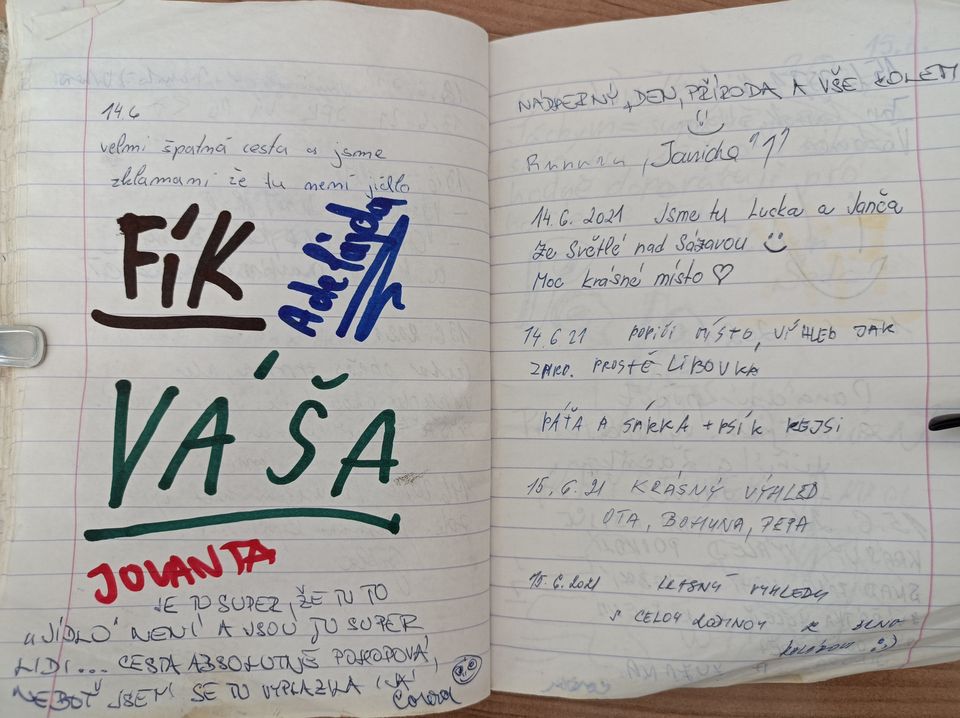 14.6
velmi špatná cesta a jsme
zklamaní že tu není jídlo
FÍK
Adelajda
VÁŠA
JOVANTA
JE TU SUPER, ŽE TU TO
„JÍDLO“ NENÍ A JSOU TU SUPER
LIDI... CESTA ABSOLUTNĚ POHODOVÁ,
NEBOŤ JSEM SE TU
NÁDHERNÝ DEN, PŘÍRODA A VŠE KOLEM
14.6. 2021 Jsme tu Lucka a Janča
ze Světlé nad Sázavou
Moc krásné místo
14.6 21 MÍSTO, VÝHLED JAK
PROSTĚ
PÁŤA A ŠÁRKA + PSÍK KEJSI
15, 6. 21 KRÁSNÝ VÝHLED
OTA, BOHUNA, PEPA
15. 6. 2021 KRÁSNÝ VÝHLEDY
S CELOU RODINOU